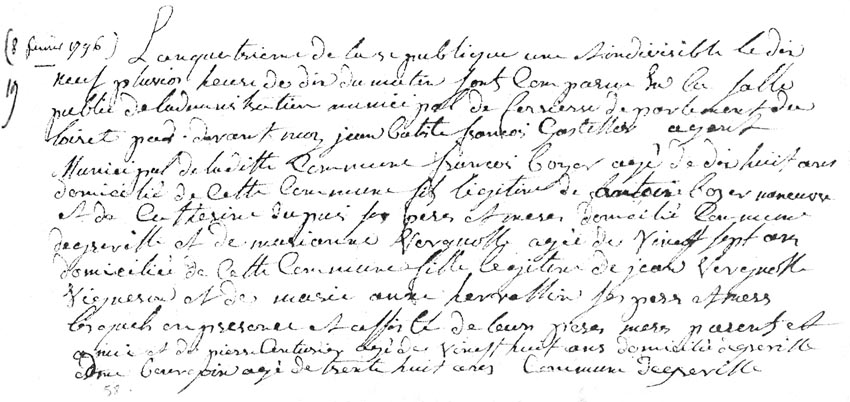 (8 fevrier 1796) L an quatrieme de la republique une et indivisible le dix
19 neuf pluvios heure de dix du matin sont comparu en la salle
public de ladministration municipal de departement du
loiret par devant moy jean batiste francois agent
municipal de laditte commune francois boyer agé de dix huit ans
domicilié de cette commune fils legitime de antoine boyer maneuvre
et de catterine dupuis ses peres et meres domicilié commune
degreville et de marianne Vergnolle agée de vingt sept ans
domiciliée de cette commune fille legitime de jean Vergnolle
Vigneron et de marie anne ses peres et meres
lesquels en presence et assisté de leurs peres meres parents et
amis et de pierre agé de vingt huit ans domicilié a egreville
edme agé de trente huit ans commune degreville
58